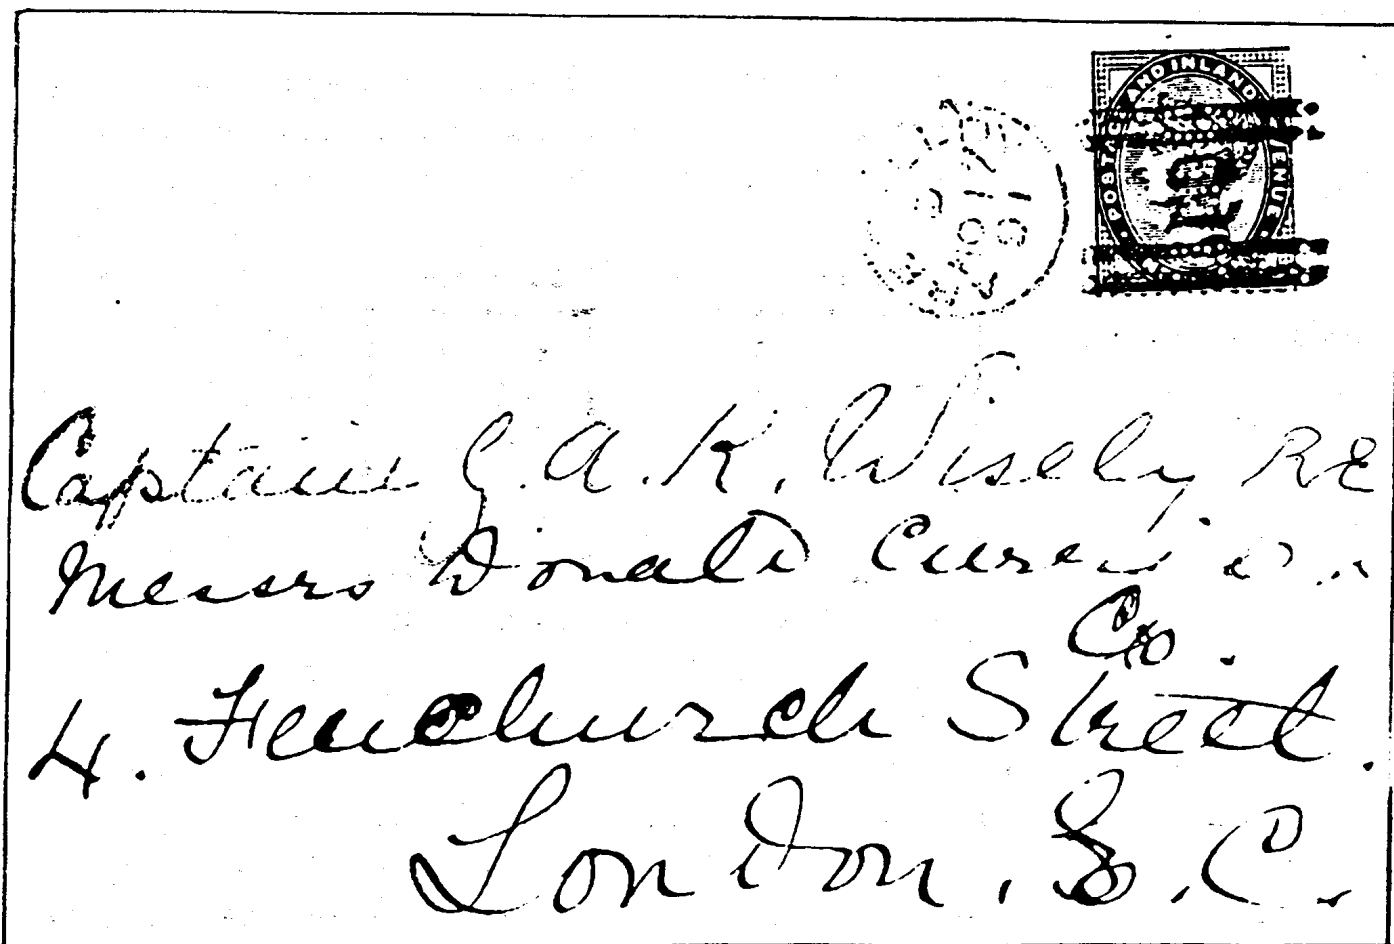 POSTAGE AND INLAND REVENUE
Captain G. A. K. Wisely RE
Messrs Donald Currie
Co.
4. Fenchurch Street.
London. E.C.